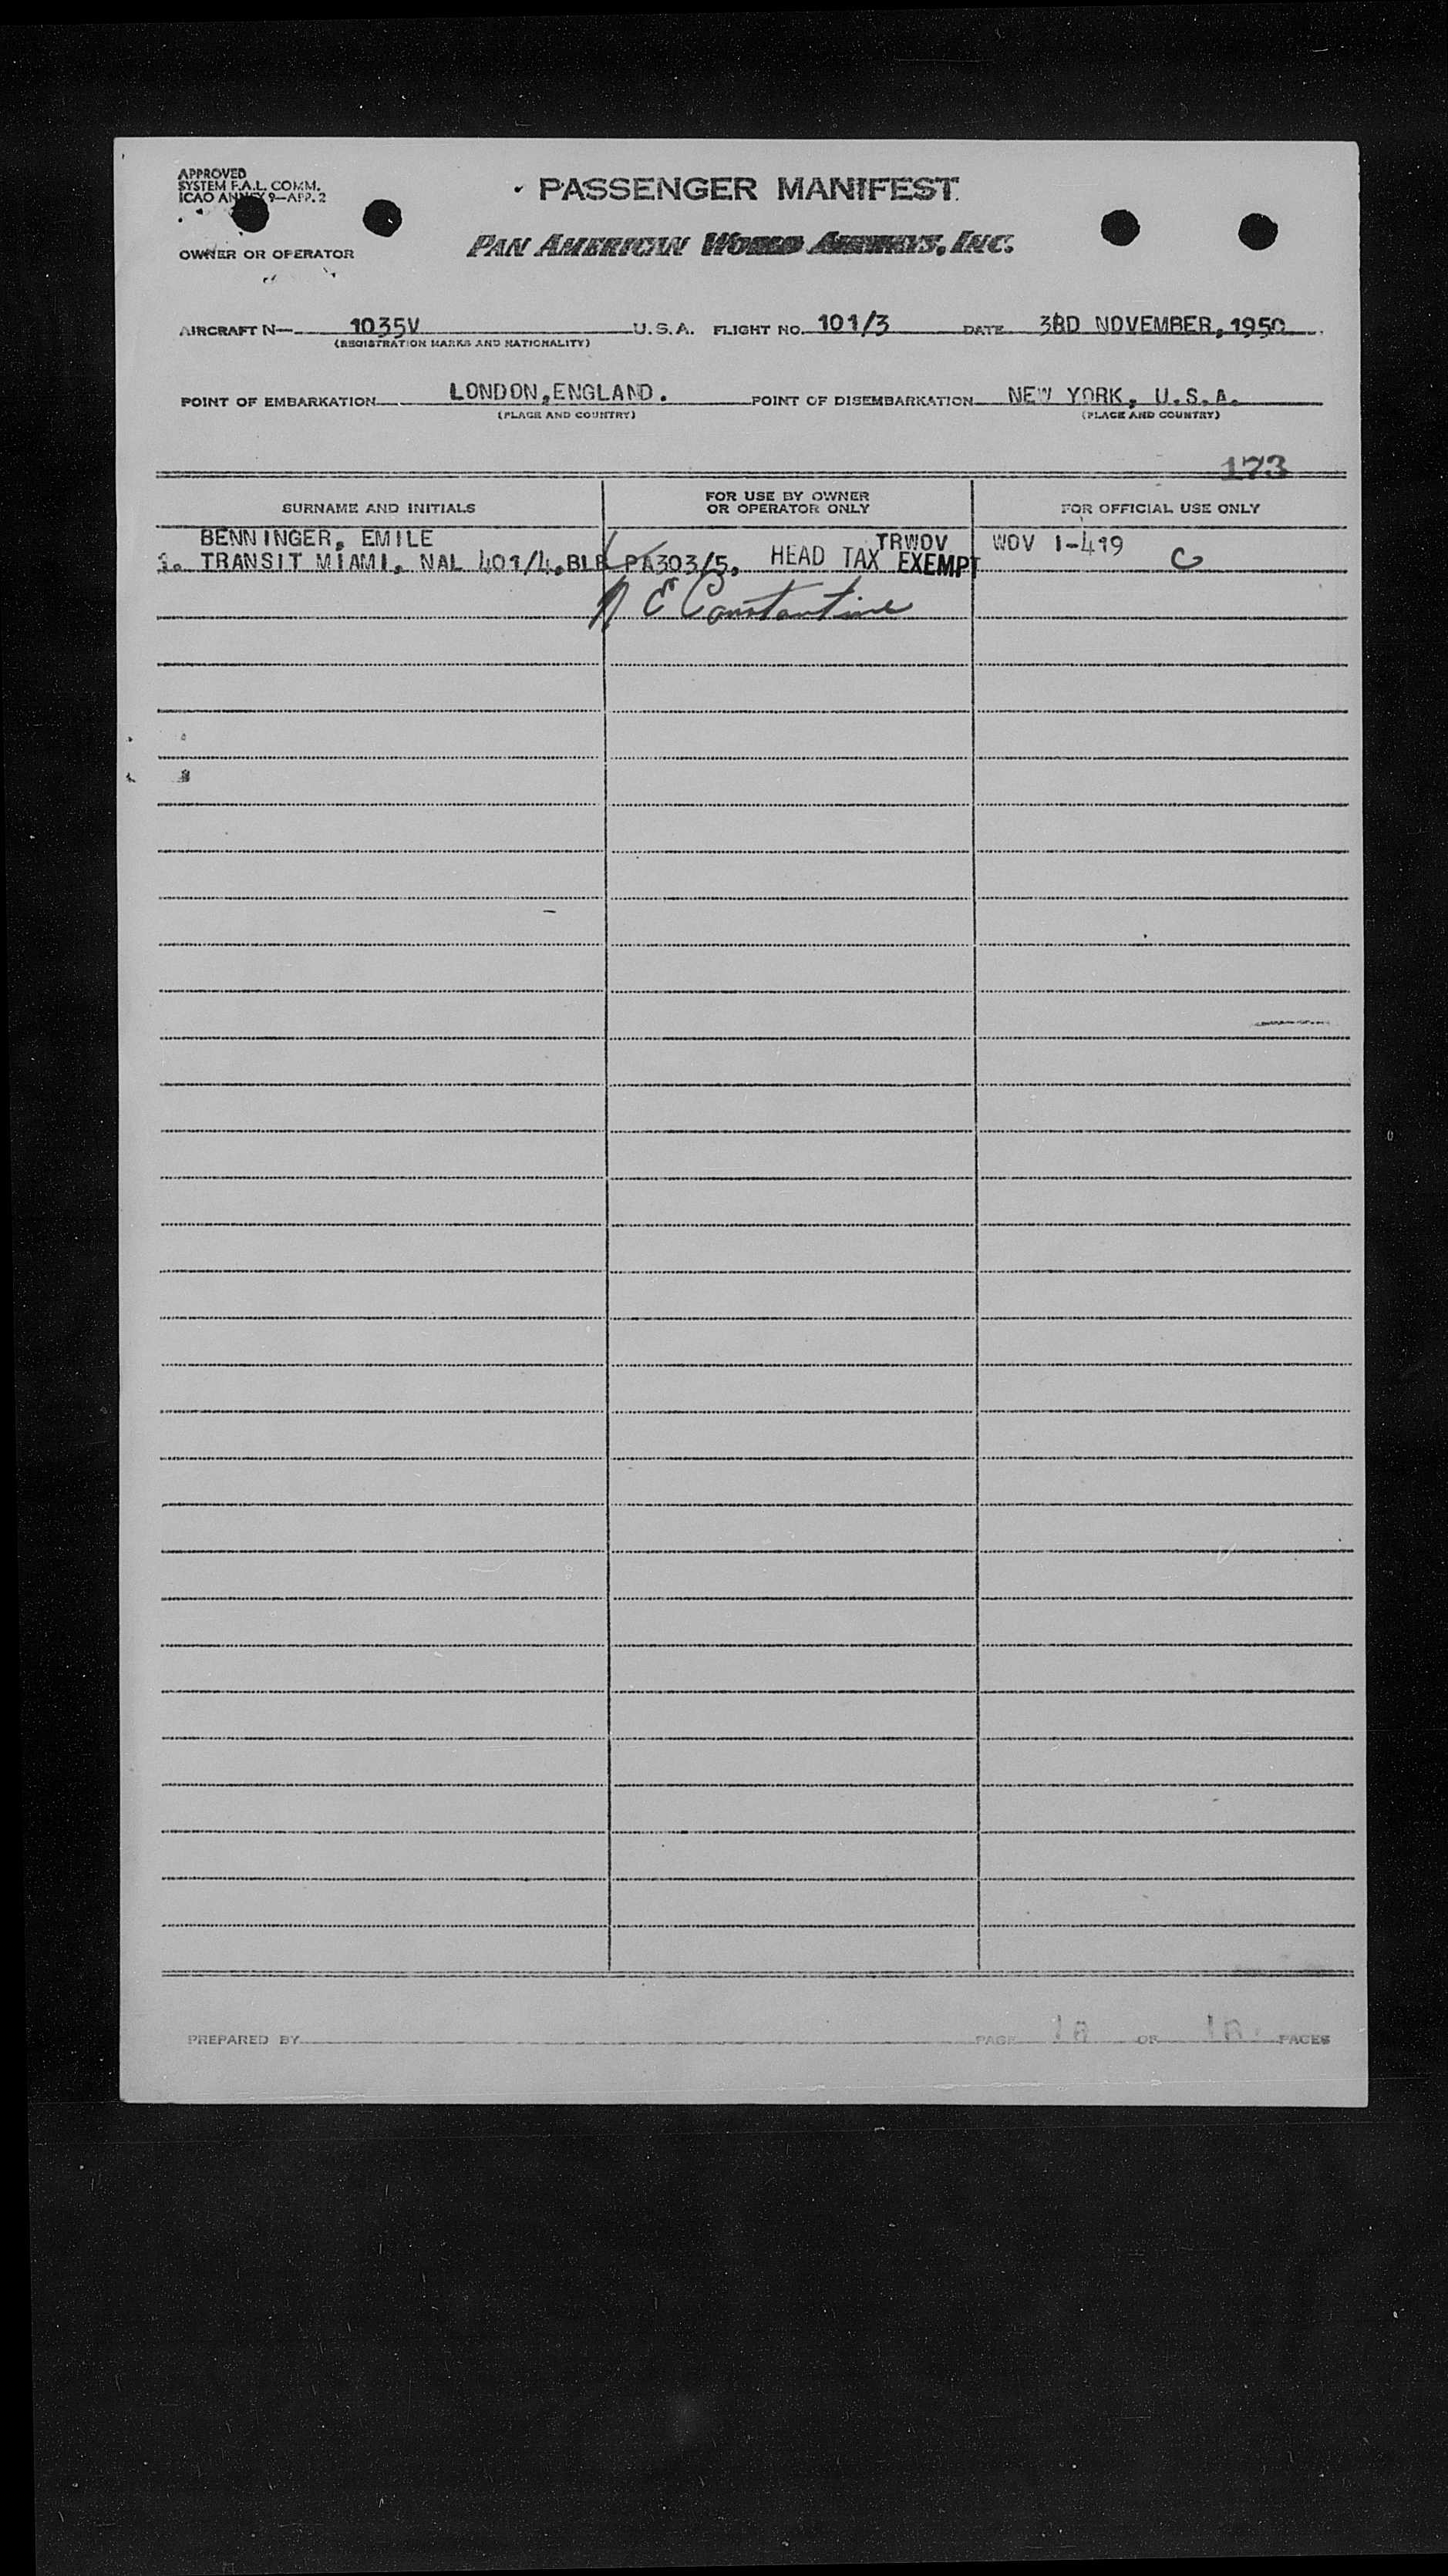 APPROVED
SYSTEM F.A.L. COMM.
ICAO ANNEX 9—APP. 2
PASSENGER MANIFEST
PAN AMERICAN WORLD AIRWAYS, INC.
OWNER OR OPERATOR
AIRCRAFT N— 1035V U.S.A. FLIGHT NO. 101/3 DATE 3RD NOVEMBER, 1950
(REGISTRATION MARKS AND NATIONALITY)
POINT OF EMBARKATION LONDON, ENGLAND. POINT OF DISEMBARKATION NEW YORK, U.S.A.
(PLACE AND COUNTRY) (PLACE AND COUNTRY)
173
SURNAME AND INITIALS FOR USE BY OWNER OR OPERATOR ONLY FOR OFFICIAL USE ONLY
BENNINGER, EMILE TRWOV WOV 1-419
1. TRANSIT MIAMI, NAL 401/4, BLB PA303/5, HEAD TAX EXEMPT C
N E Constantine
PREPARED BY PAGE 1A OF 1A PAGES